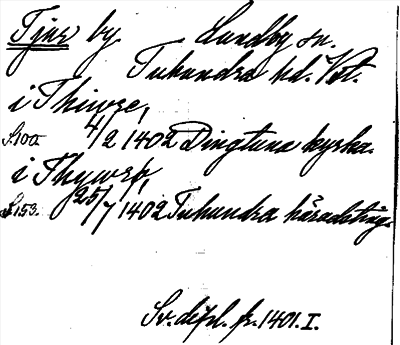 Tjur by Lundby sn.
Tuhundra hd. Vst.
i Thiwre,
S.100. 4/2 1402 Dingtuna kyrka.
i Thywrp,
S.153. 25/7 1402 Tuhundra häradsting.
Sv. dipl. fr. 1401. I.